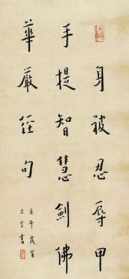 身被忍辱甲
手提智慧劍佛
華嚴經句